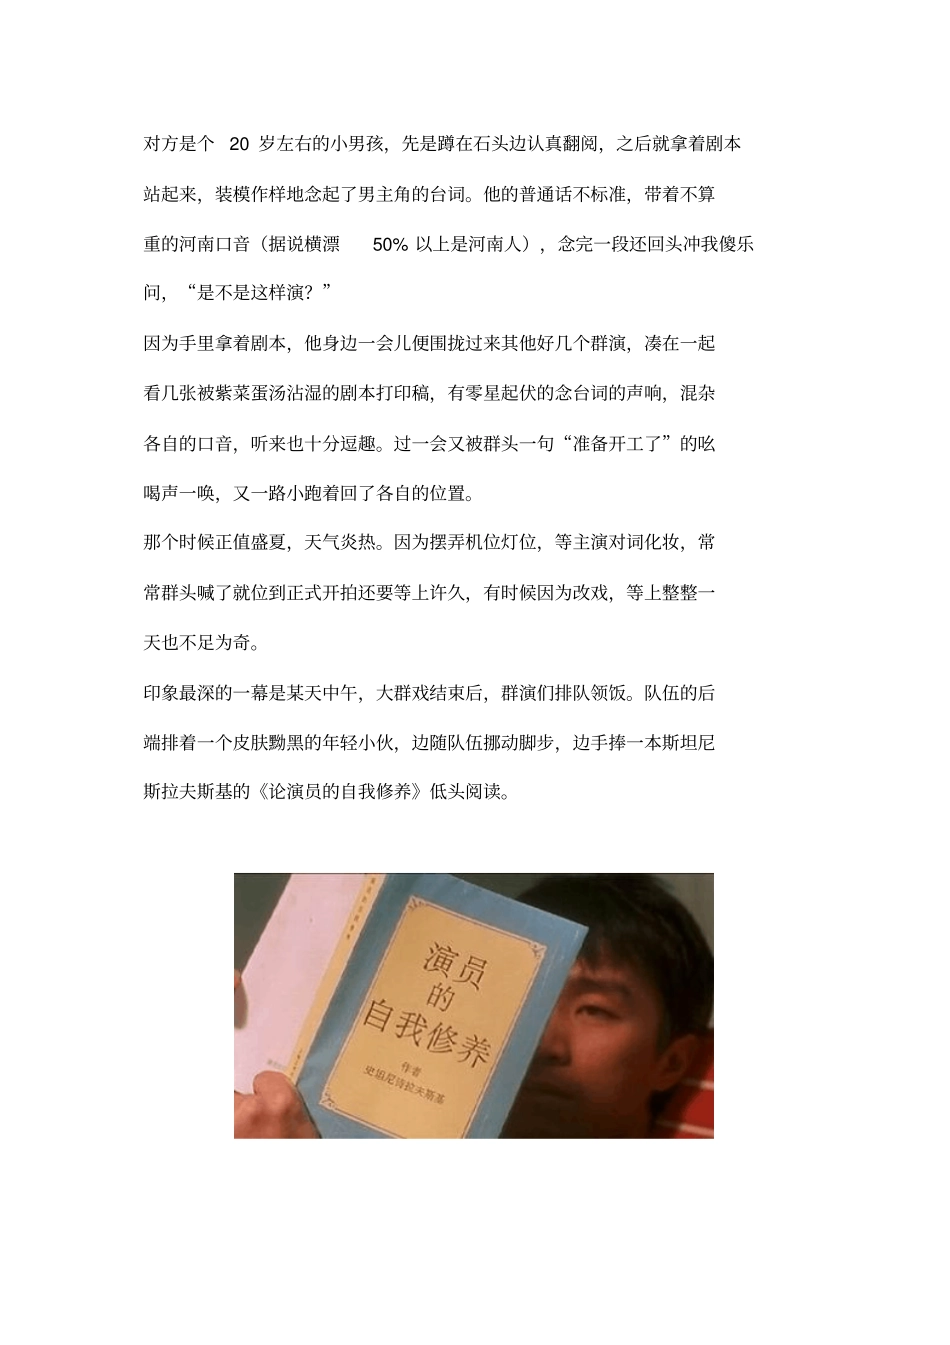 对方是个 20 岁左右的小男孩，先是蹲在石头边认真翻阅，之后就拿着剧本
站起来，装模作样地念起了男主角的台词。他的普通话不标准，带着不算
重的河南口音（据说横漂 50% 以上是河南人），念完一段还回头冲我傻乐
问，“是不是这样演？”
因为手里拿着剧本，他身边一会儿便围拢过来其他好几个群演，凑在一起
看几张被紫菜蛋汤沾湿的剧本打印稿，有零星起伏的念台词的声响，混杂
各自的口音，听来也十分逗趣。过一会又被群头一句“准备开工了”的吆
喝声一唤，又一路小跑着回了各自的位置。
那个时候正值盛夏，天气炎热。因为摆弄机位灯位，等主演对词化妆，常
常群头喊了就位到正式开拍还要等上许久，有时候因为改戏，等上整整一
天也不足为奇。
印象最深的一幕是某天中午，大群戏结束后，群演们排队领饭。队伍的后
端排着一个皮肤黝黑的年轻小伙，边随队伍挪动脚步，边手捧一本斯坦尼
斯拉夫斯基的《论演员的自我修养》低头阅读。
演员
的
自我修养
作者
史坦尼诗拉夫斯基